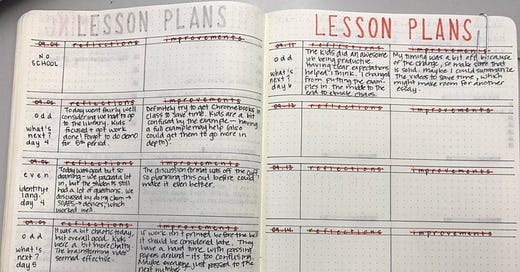 LESSON PLANS
reflections
improvements
NO
SCHOOL
reflections
improvements
odd
what's
next?
day 4
Today went fairly well
considering we had to go
to the library. Kids
focused + got work
done! Forgot to do demo
for 5th period.
Definitely try to get Chromebooks in
class to save time. Kids are a bit
confused by the example - having
a full example may help (also
could get them to go more in
depth).
reflections
improvements
even
identity+
lang.
day 4
Today was good but so
draining - we packed a lot
in, but the students still
had a lot of questions. We
discussed by doing claim →
SOAPS → devices, which
worked well.
The discussion format was off the cuff,
so planning this out before could
make it even better.
reflections
improvements
odd
what's
next?
day 5
It was a bit chaotic today,
but overall good. Kids
were a bit more chatty.
The brainstorming video
seemed effective.
If work isn't printed before the bell
it should be considered late. They
have a hard time with passing
papers around - it's too confusing.
Maybe everyone just passed to the
next number?
LESSON PLANS
reflections
improvements
odd
what's
next?
day 6
The kids did an awesome
job being productive.
Having clear expectations
helped, I think. I changed
from putting the exam-
ples in the middle to the
end to minimize chaos.
My timing was a bit off because
of the change, so make sure that
is solid. Maybe I could summarize
the videos to save time, which
might make room for another
essay.
reflections
improvements
reflections
improvements
09.14
reflections
improvements